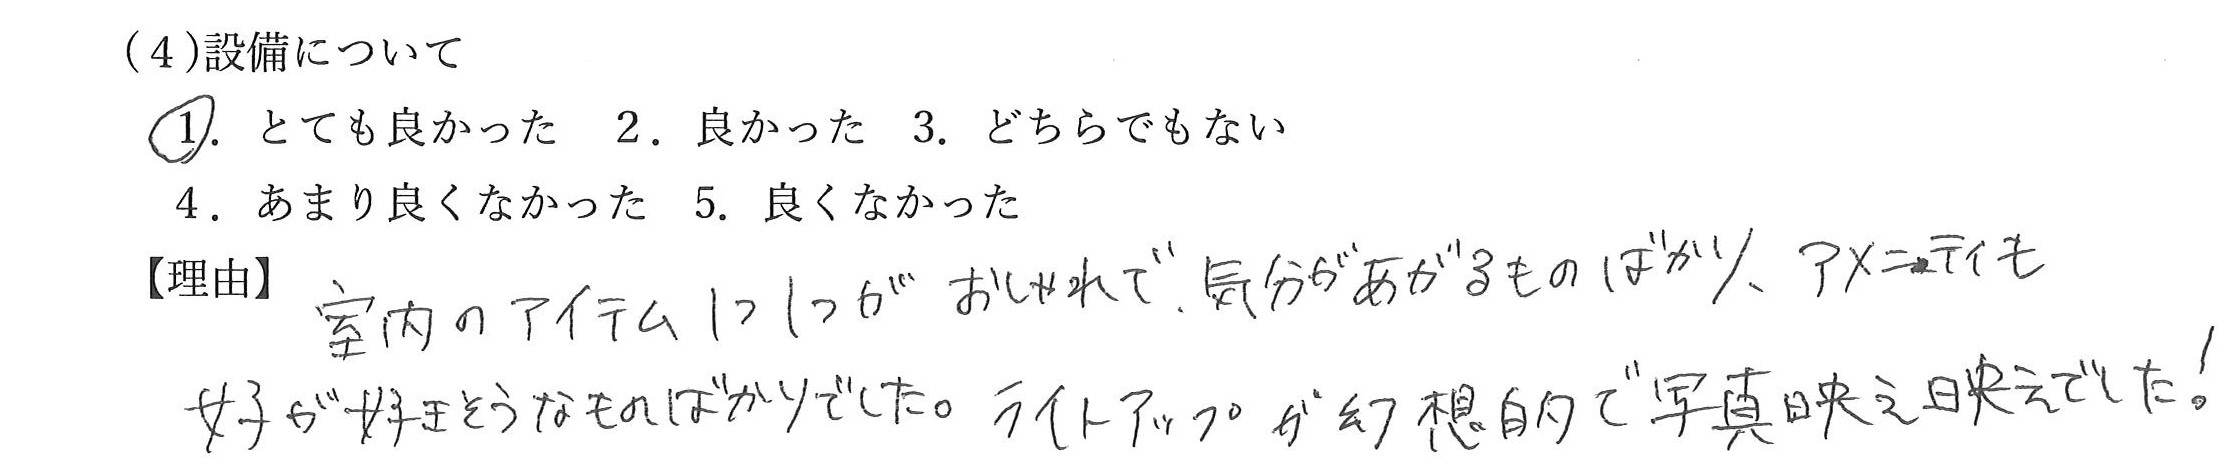 (4)設備について
1. とても良かった 2. 良かった 3. どちらでもない
4. あまり良くなかった 5. 良くなかった
【理由】 室内のアイテム1つ1つがおしゃれで、気分があがるものばかり、アメニティも
女子が好きそうなものばかりでした。ライトアップが幻想的で写真映え映えでした!